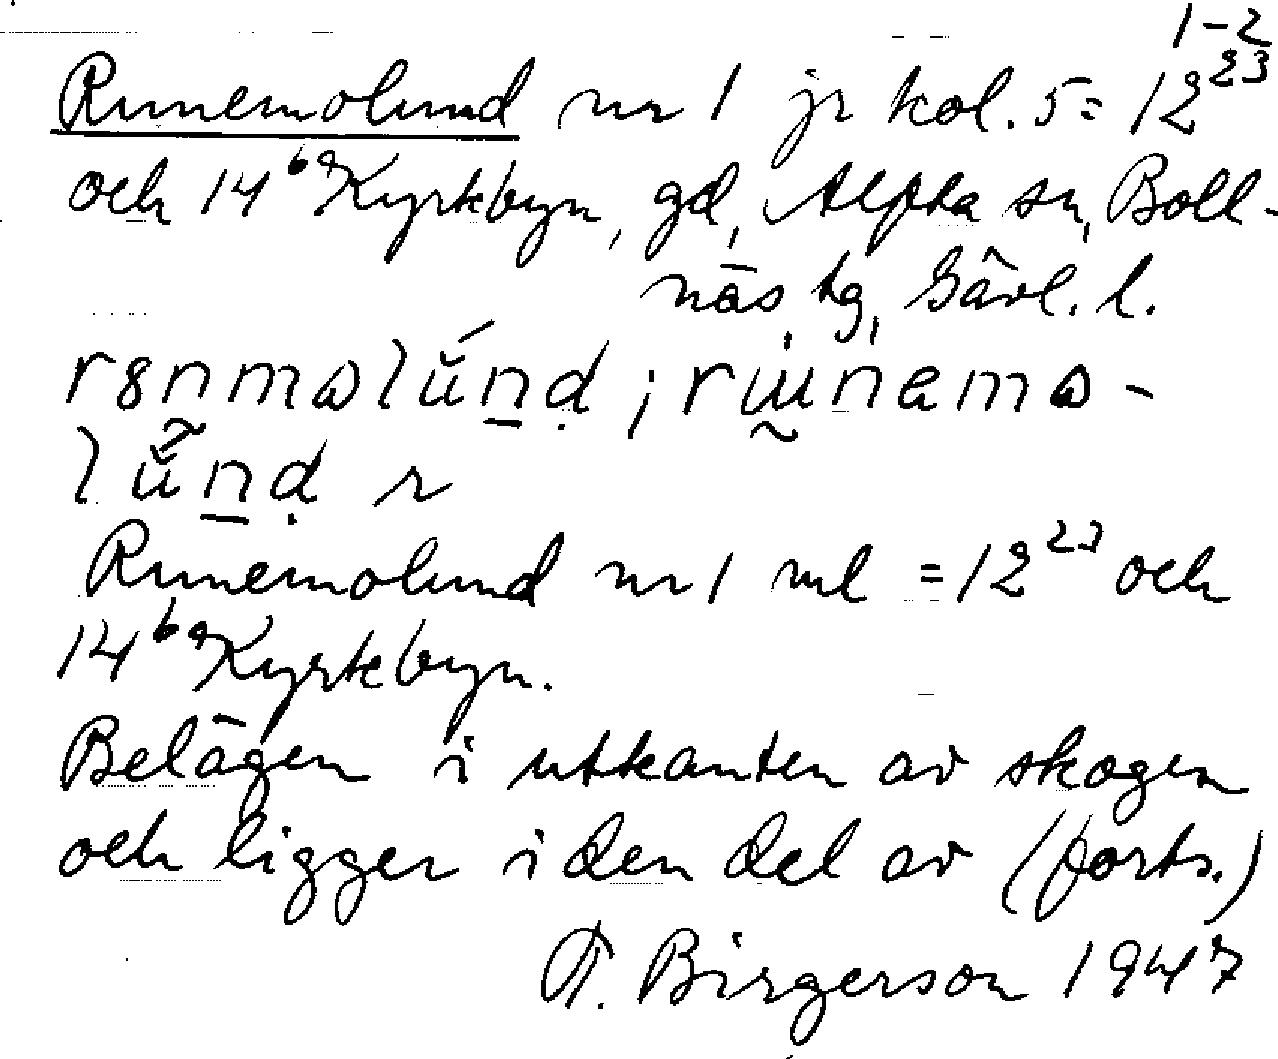 1-2
Runemolund nr 1 jr kol. 5 = 12²³
och 14⁶⁹ Kyrkbyn, gd, Alfta sn, Boll-
näs tg, Gävl. l.
Runemolund nr 1 ml = 12²³ och
14⁶⁹ Kyrkbyn.
Belägen i utkanten av skogen
och ligger i den del av (forts.)
Birgerson 1947